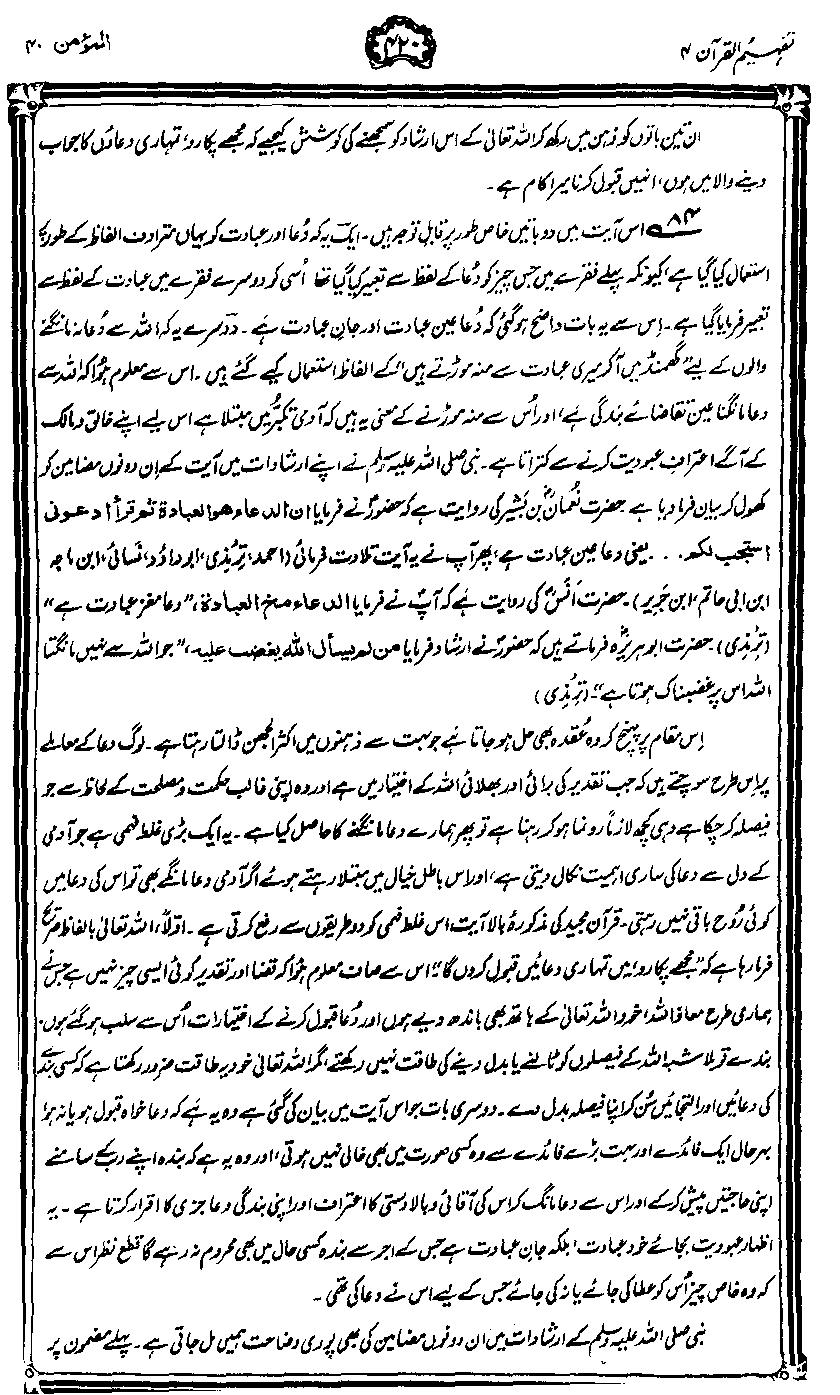 تفہیم القرآن ۴
۴۲۰
المؤمن ۴۰
ان تین باتوں کو ذہن میں رکھ کر اللہ تعالیٰ کے اس ارشاد کو سمجھنے کی کوشش کیجیے کہ مجھے پکارو، تمہاری دعاؤں کا جواب
دینے والا میں ہوں، انہیں قبول کرنا میرا کام ہے۔
۸۴ اس آیت میں دو باتیں خاص طور پر قابل توجہ ہیں۔ ایک یہ کہ دُعا اور عبادت کو یہاں مترادف الفاظ کے طور پر
استعمال کیا گیا ہے، کیونکہ پہلے فقرے میں جس چیز کو دُعا کے لفظ سے تعبیر کیا گیا تھا اُسی کو دوسرے فقرے میں عبادت کے لفظ سے
تعبیر فرمایا گیا ہے۔ اِس سے یہ بات واضح ہو گئی کہ دُعا عین عبادت اور جانِ عبادت ہے۔ دوسرے یہ کہ اللہ سے دُعا نہ مانگنے
والوں کے لیے ”گھمنڈ میں آکر میری عبادت سے منہ موڑتے ہیں“ کے الفاظ استعمال کیے گئے ہیں۔ اس سے معلوم ہوا کہ اللہ سے
دعا مانگنا عین تقاضائے بندگی ہے، اور اُس سے منہ موڑنے کے معنی یہ ہیں کہ آدمی تکبّر میں مبتلا ہے اس لیے اپنے خالق و مالک
کے آگے اعترافِ عبودیت کرنے سے کتراتا ہے۔ نبی صلی اللہ علیہ وسلم نے اپنے ارشادات میں آیت کے اِن دونوں مضامین کو
کھول کر بیان فرما دیا ہے حضرت نُعمانؓ بن بشیر کی روایت ہے کہ حضورؐ نے فرمایا ان الدعاء ھو العبادة ثم قرأ ادعونی
استجب لکم ... یعنی دعا عین عبادت ہے، پھر آپ نے یہ آیت تلاوت فرمائی (احمد، ترمذی، ابو داؤد، نسائی، ابن ماجہ
ابن ابی حاتم، ابن جریر)۔ حضرت اَنَسؓ کی روایت ہے کہ آپؐ نے فرمایا الدعاء مخ العبادة، ”دعا مغزِ عبادت ہے“
(ترمذی)۔ حضرت ابو ہریرہؓ فرماتے ہیں کہ حضورؐ نے ارشاد فرمایا من لم یسأل اللّٰه یغضب علیه، ”جو اللہ سے نہیں مانگتا
اللہ اس پر غضبناک ہوتا ہے“۔ (ترمذی)
اِس مقام پر پہنچ کر وہ عُقدہ بھی حل ہو جاتا ہے جو بہت سے ذہنوں میں اکثر الجھن ڈالتا رہتا ہے۔ لوگ دعا کے معاملے
پر اِس طرح سوچتے ہیں کہ جب تقدیر کی برائی اور بھلائی اللہ کے اختیار میں ہے اور وہ اپنی غالب حکمت و مصلحت کے لحاظ سے جو
فیصلہ کر چکا ہے وہی کچھ لازماً رونما ہو کر رہنا ہے تو پھر ہمارے دعا مانگنے کا حاصل کیا ہے۔ یہ ایک بڑی غلط فہمی ہے جو آدمی
کے دل سے دعا کی ساری اہمیت نکال دیتی ہے، اور اس باطل خیال میں مبتلا رہتے ہوئے اگر آدمی دعا مانگے بھی تو اس کی دعا میں
کوئی رُوح باقی نہیں رہتی۔ قرآن مجید کی مذکورۂ بالا آیت اس غلط فہمی کو دو طریقوں سے رفع کرتی ہے۔ اوّلاً، اللہ تعالیٰ بالفاظ صریح
فرما رہا ہے کہ ”مجھے پکارو، میں تمہاری دعائیں قبول کروں گا“ اس سے صاف معلوم ہوا کہ قضا اور تقدیر کوئی ایسی چیز نہیں ہے جس نے
ہماری طرح معاذ اللہ، خود اللہ تعالیٰ کے ہاتھ بھی باندھ دیے ہوں اور دُعا قبول کرنے کے اختیارات اُس سے سلب ہو گئے ہوں۔
بندے تو بلاشبہ اللہ کے فیصلوں کو ٹالنے یا بدل دینے کی طاقت نہیں رکھتے، مگر اللہ تعالیٰ خود یہ طاقت ضرور رکھتا ہے کہ کسی بندے
کی دعائیں اور التجائیں سُن کر اپنا فیصلہ بدل دے۔ دوسری بات جو اس آیت میں بیان کی گئی ہے وہ یہ ہے کہ دعا خواہ قبول ہو یا نہ ہو
بہرحال ایک فائدے اور بہت بڑے فائدے سے وہ کسی صورت میں بھی خالی نہیں ہوتی، اور وہ یہ ہے کہ بندہ اپنے رب کے سامنے
اپنی حاجتیں پیش کر کے اور اس سے دعا مانگ کر اس کی آقائی و بالادستی کا اعتراف اور اپنی بندگی و عاجزی کا اقرار کرتا ہے۔ یہ
اظہارِ عبودیت بجائے خود عبادت، بلکہ جانِ عبادت ہے جس کے اجر سے بندہ کسی حال میں بھی محروم نہ رہے گا قطع نظر اس سے
کہ وہ خاص چیز اُس کو عطا کی جائے یا نہ کی جائے جس کے لیے اس نے دعا کی تھی۔
نبی صلی اللہ علیہ وسلم کے ارشادات میں ان دونوں مضامین کی بھی پوری وضاحت ہمیں مل جاتی ہے۔ پہلے مضمون پر